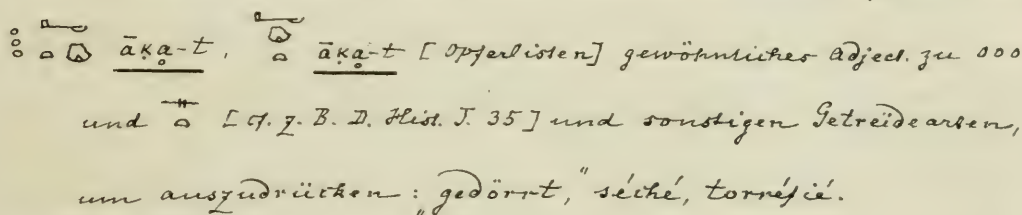 āḳa-t, āḳa-t [Opferlisten] gewöhnliches Adject. zu ooo
und [cf. z. B. D. Hist. J. 35] und sonstigen Getreidearten,
um auszudrücken: „gedörrt,“ séché, torréfié.